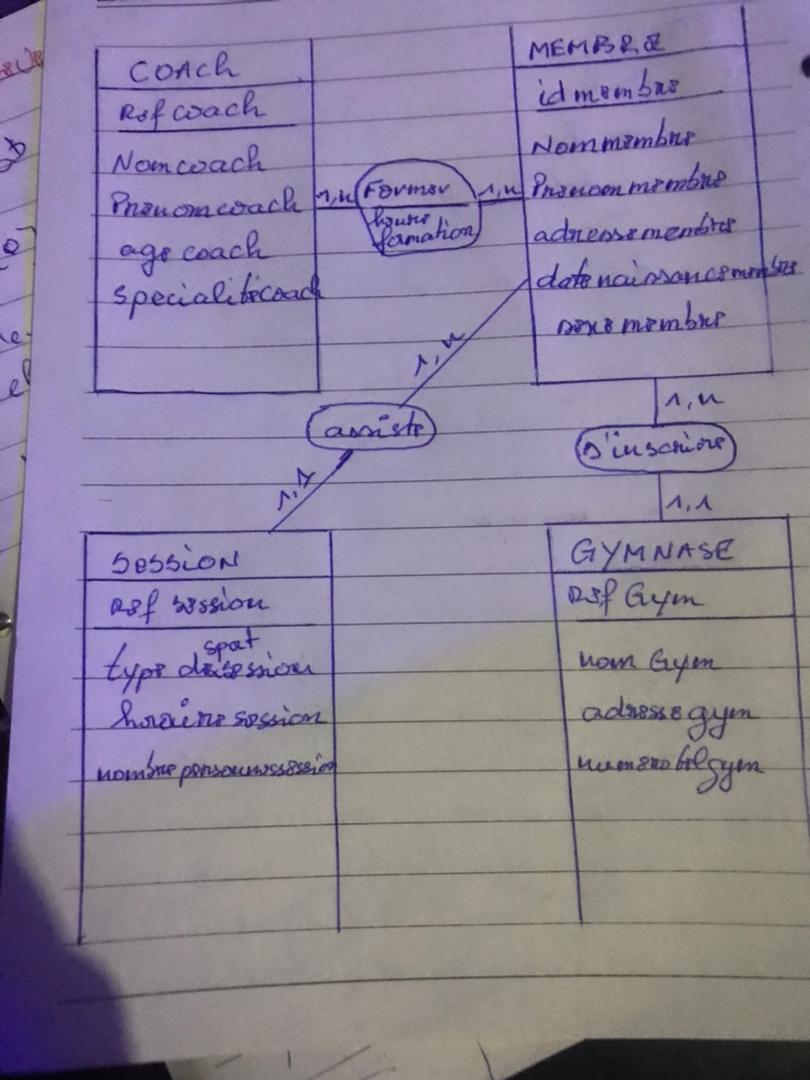 COACH
Ref coach
Nom coach
Prenom coach
age coach
specialitécoach
1,n
Former
heure
formation
1,n
MEMBRE
id membre
Nom membre
Prenom membre
adresse membre
date naissance membre
sexe membre
1,n
assiste
1,1
1,n
s'inscrire
1,1
SESSION
Ref session
spot
type de session
horaire session
nombre personnes session
GYMNASE
Ref Gym
nom Gym
adresse gym
numero tel gym